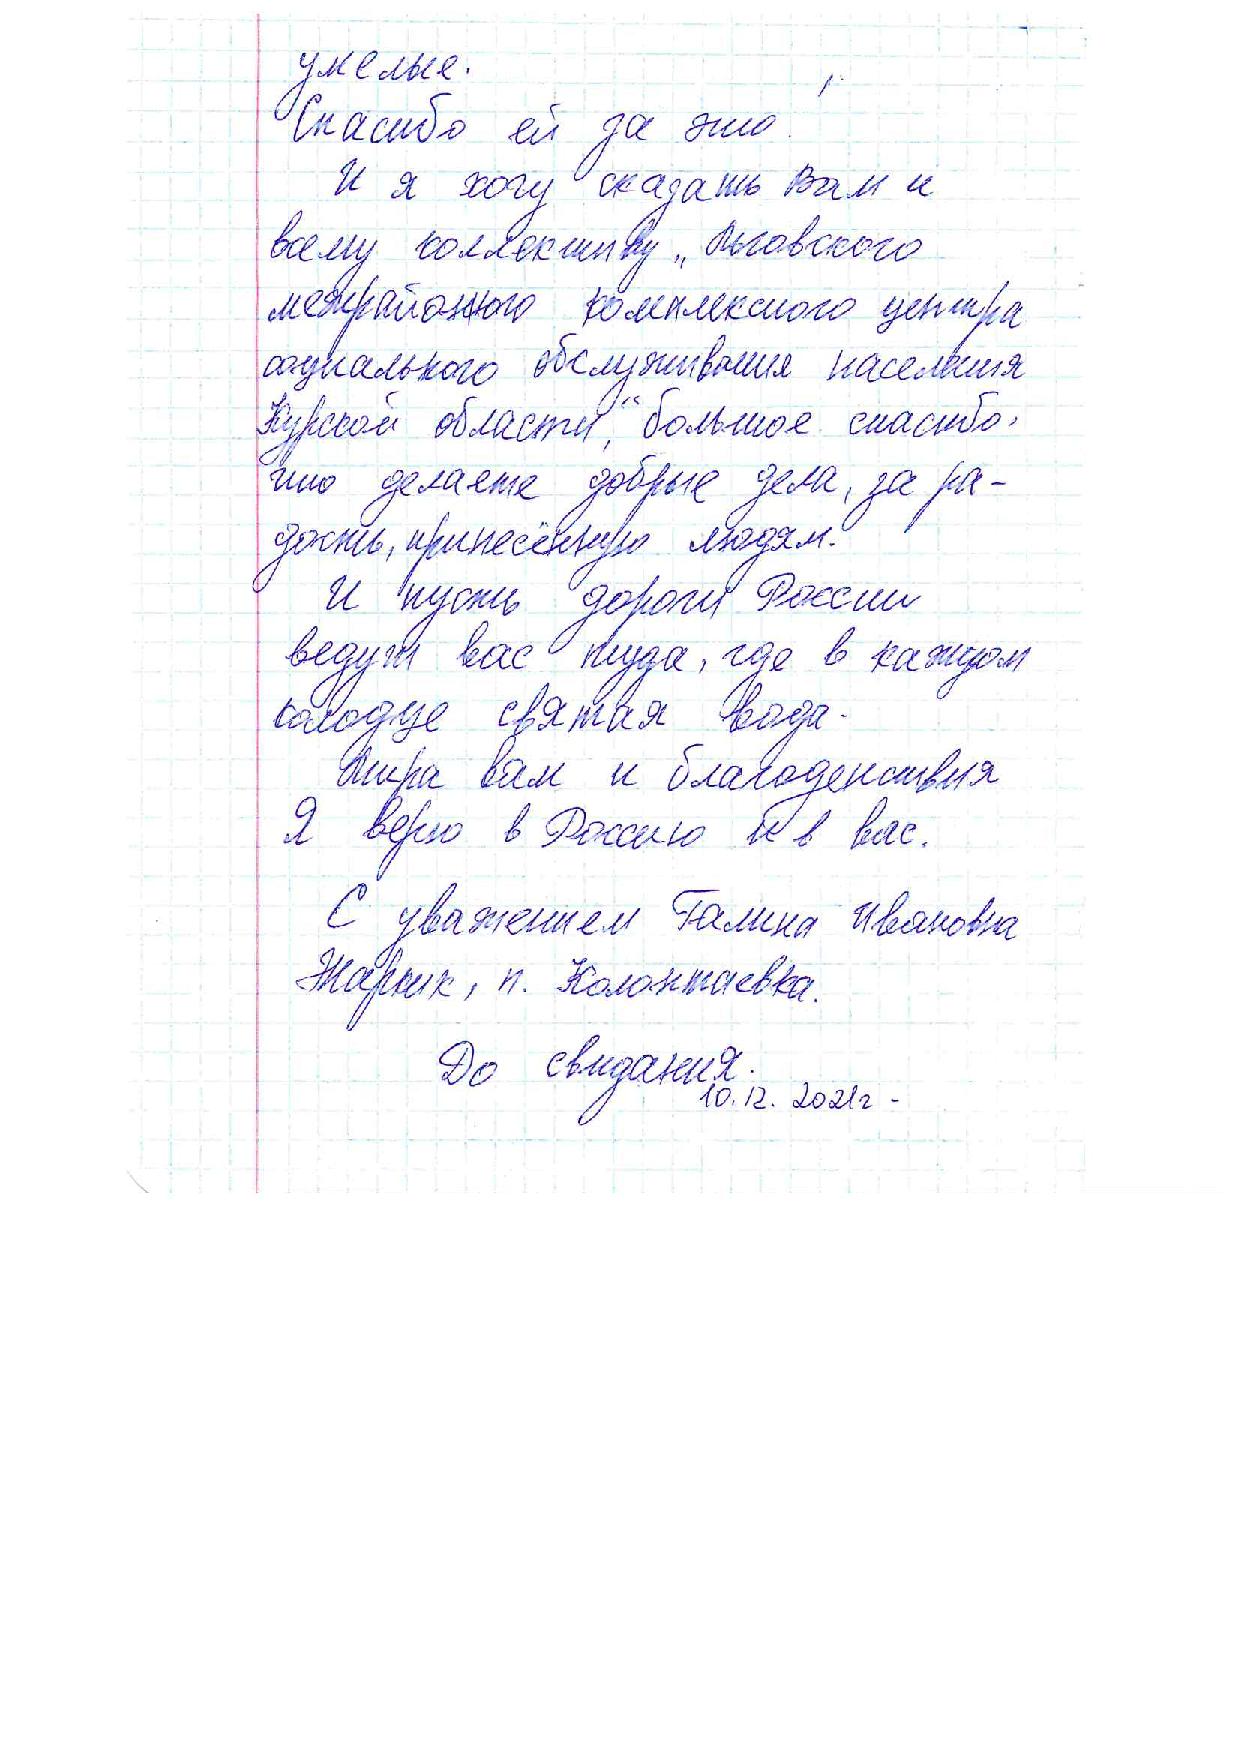 умелые.
Спасибо ей за это.
И я хочу сказать Вам и
всему коллективу „Льговского
межрайонного комплексного центра
социального обслуживания населения
Курской области," большое спасибо,
что делаете добрые дела, за ра-
дость, принесённую людям.
И пусть дороги России
ведут вас туда, где в каждом
колодце святая вода.
Мира вам и благоденствия
Я верю в Россию и в вас.
С уважением Галина Ивановна
п. Колонтаевка.
До свидания.
10.12. 2021г -